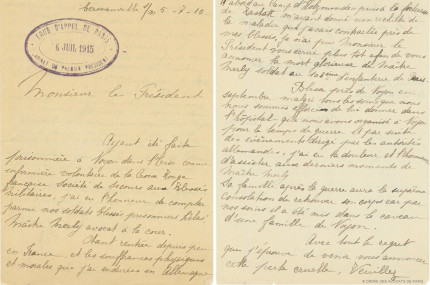 5-7-15
COUR D'APPEL DE PARIS
6 JUIL 1915
CABINET DU PREMIER PRÉSIDENT
Monsieur le Président
Ayant été faite
prisonnière à Noyon dans l'Oise comme
infirmière volontaire de la Croix Rouge
française Société de Secours aux Blessés
Militaires, j'ai eu l'honneur de compter
parmi nos soldats blessés prisonniers
Maître avocat à la cour.
Étant rentrée depuis peu
en France, et les souffrances physiques
et morales que j'ai endurées en Allemagne
d'abord au camp d'
m'ayant donné une rechute de
la maladie que j'avais contractée près de
mes blessés, je n'ai pu Monsieur le
Président vous écrire plus tôt afin de vous
annoncer la mort glorieuse de Maître
soldat au d'infanterie de
Blessé près de Noyon en
septembre malgré tous les soins que nous
nous sommes efforcés de lui donner dans
l'hôpital que nous avons organisé à Noyon
pour le temps de guerre. Et par suite
des événements dirigé par les autorités
allemandes, j'ai eu la douleur et l'honneur
d'assister aux derniers moments de
Maître
La famille après la guerre aura la suprême
consolation de retrouver son corps car par
nos soins il a été mis dans le caveau
d'une famille de Noyon.
Avec tout le regret
que j'éprouve de venir vous annoncer
cette perte cruelle, Veuillez